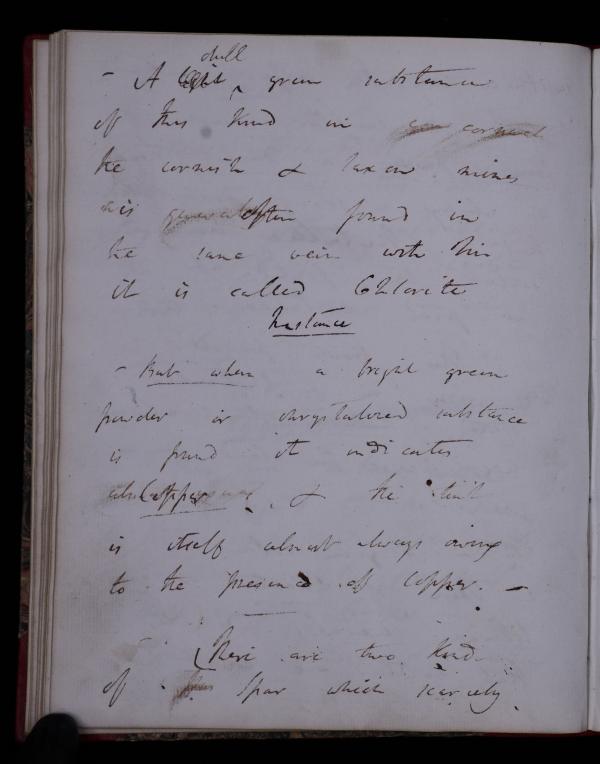 dull
- A light ^ green substance
of this kind in
the cornish & saxon mines
is often found in
the same vein with tin
it is called Chlorite
Instance
- But when a bright green
powder or chrystalized substance
is found it indicates
copper & the tint
is itself almost always owing
to the presence of Copper. -
There are two kinds
of spar which scarcely